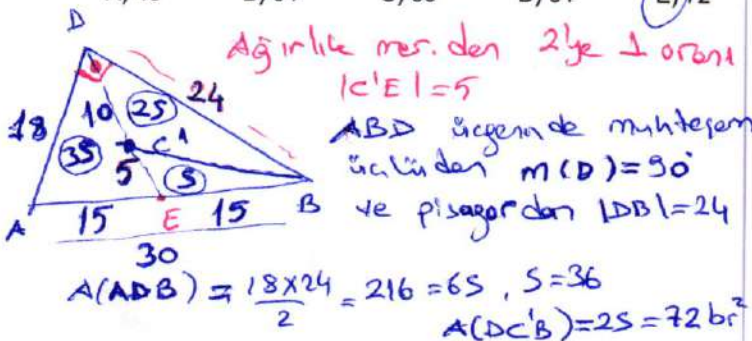 E) 72
D
Ağırlık mer. den 2'ye 1 oranı
|C'E| = 5
18 10 2S 24
3S C'
5 S
ABD üçgeninde muhteşem
üçlüden m(D) = 90°
ve pisagordan |DB| = 24
A 15 E 15 B
30
A(ADB) = 18x24/2 = 216 = 6S, S = 36
A(DC'B) = 2S = 72 br²